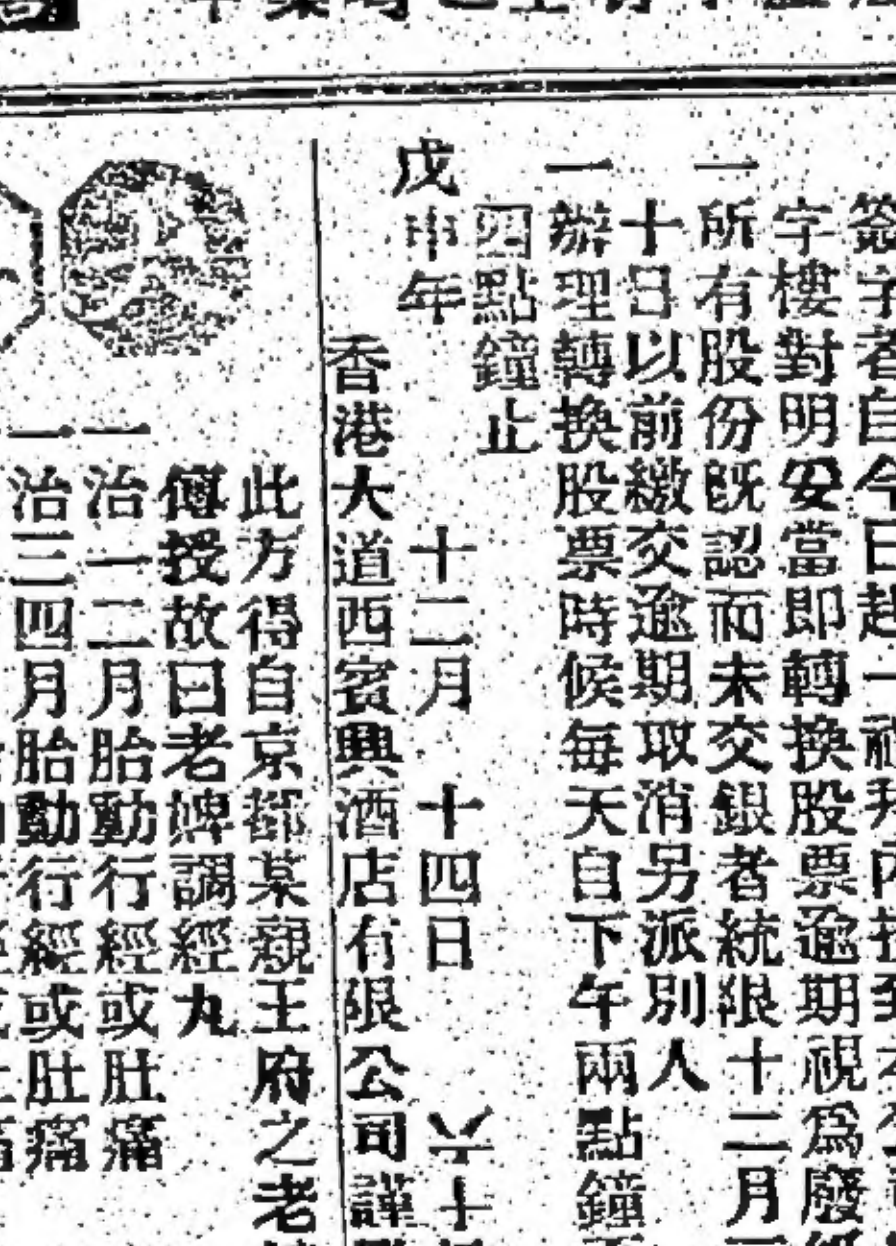 簽字者自今日起一禮拜內接到本
字樓對明妥當即轉換股票逾期視為廢紙
一所有股份既認而未交銀者統限十二月
十日以前繳交逾期取消另派別人
一辦理轉換股票時候每天自下午兩點鐘
四點鐘止
戊申年 十二月 十四日 六十
香港大道西賓興酒店有限公司謹
此方得自京都某親王府之老
傳授故曰老婢調經丸
一治一二月胎動行經或肚痛
一治三四月胎動行經或肚痛